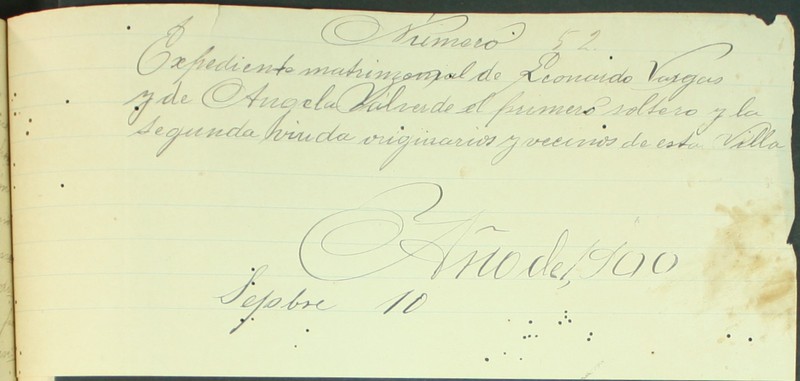 Número 52.
Expediente matrimonial de Leonardo Vargas
y de Angela Valverde el primero soltero y la
segunda viuda originarios y vecinos de esta Villa
Año de 1,900
Sepbre 10